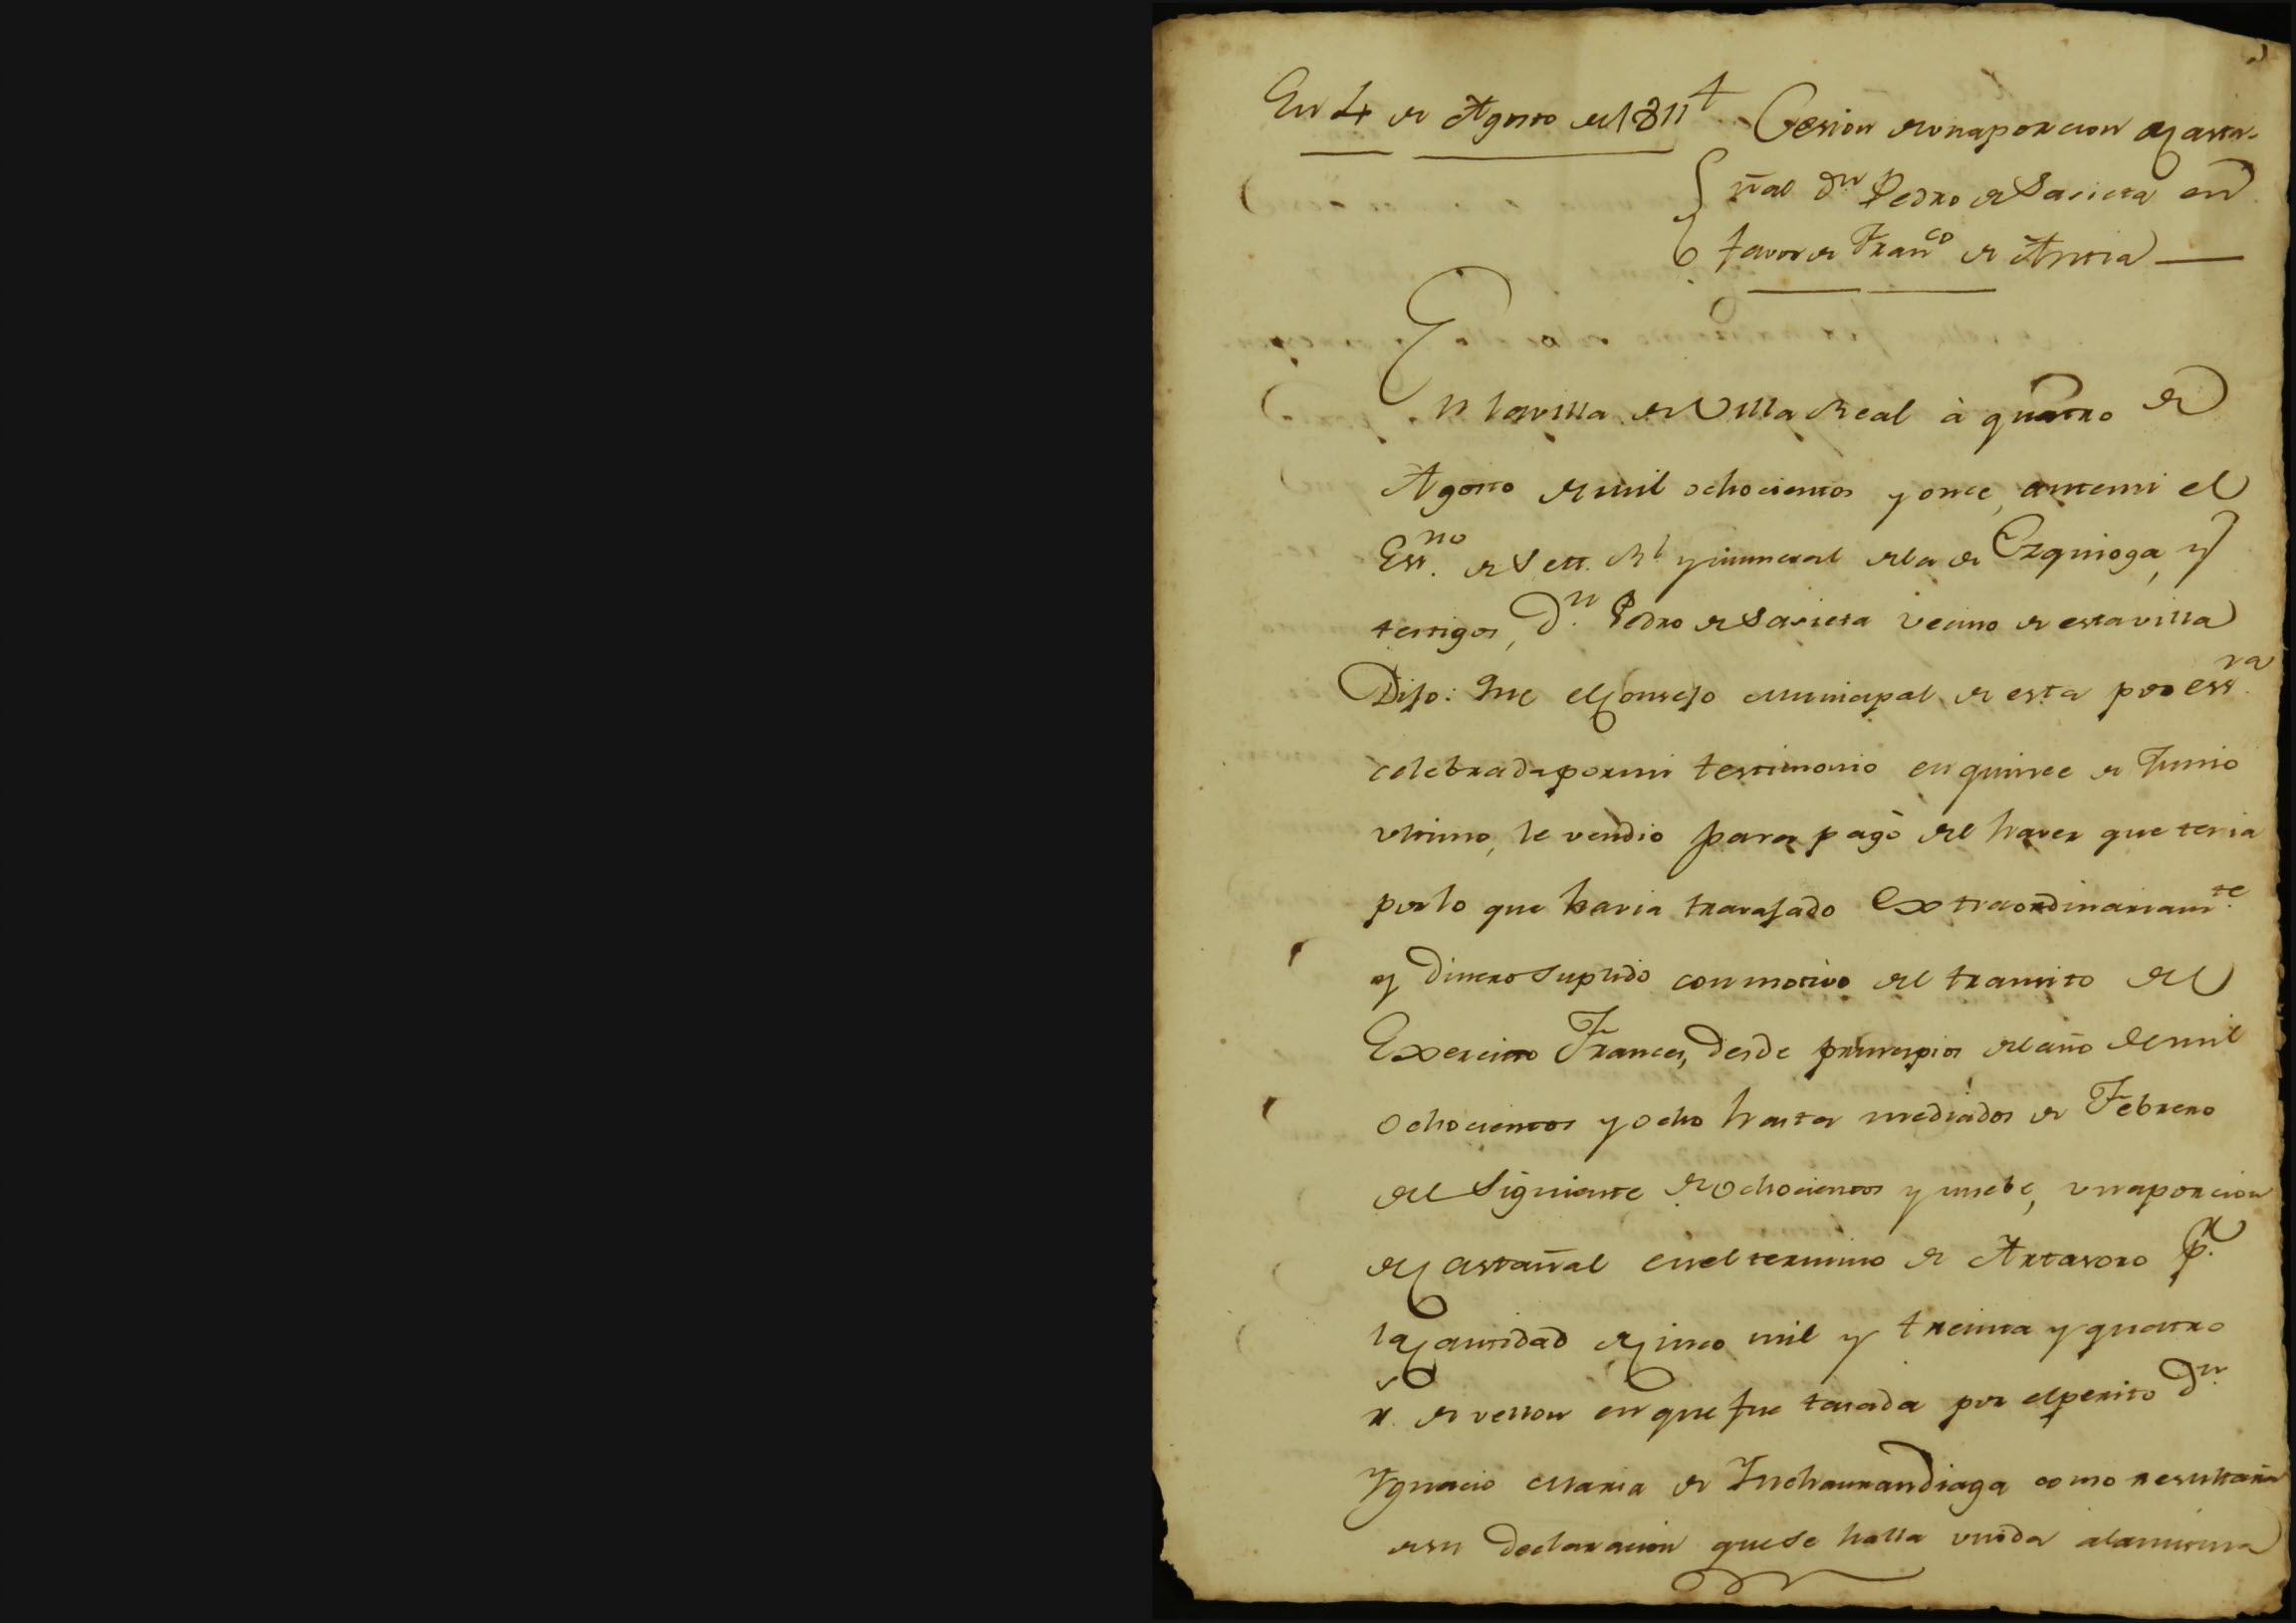 En 4 de Agosto de 1811
Cesion de una porcion de Casta-
ñal Dn Pedro de Sarieta en
favor de Franco de Antia
En la villa de Villa Real à quatro de
Agosto de mil ochocientos y once, ante mi el
Essno. de S. M. Rl y numeral de la de Ezquioga, y
testigos, Dn. Pedro de Sarieta vecino de esta villa
Dijo: Que el Consejo Municipal de esta por essra.
celebrada por mi testimonio en quince de Junio
vltimo, le vendio para pagò del haver que tenia
por lo que havia travajado Extraordinariamte.
y Dinero suplido con motivo del transito del
Exercito Frances, desde principios del año de mil
ochocientos y ocho hasta mediados de Febrero
del Siguiente de ochocientos y nuebe, vna porcion
de Castañal en el termino de Artavoro pr.
la Cantidad de Cinco mil y treinta y quatro
rs. de vellon en que fue tasada por el perito Dn.
Ygnacio Maria de Inchaurandiaga como resultaria
de su Declaracion que se halla vnida a la misma